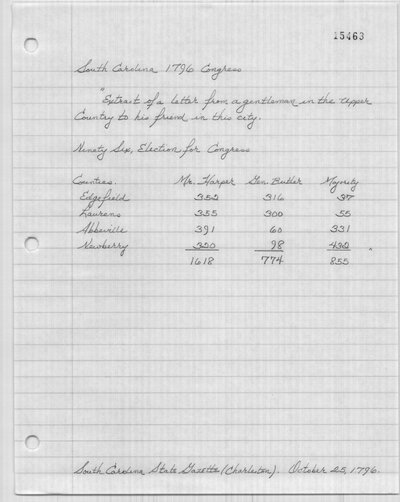 15463
South Carolina 1796 Congress
"Extract of a letter from a gentleman in the upper
Country to his friend in this city.
Ninety Six, Election for Congress
Counties. Mr. Harper Gen. Butler Majority
Edgefield 352 316 37
Laurens 355 300 55
Abbeville 391 60 331
Newberry 520 98 432 "
1618 774 855
South Carolina State Gazette (Charleston). October 25, 1796.